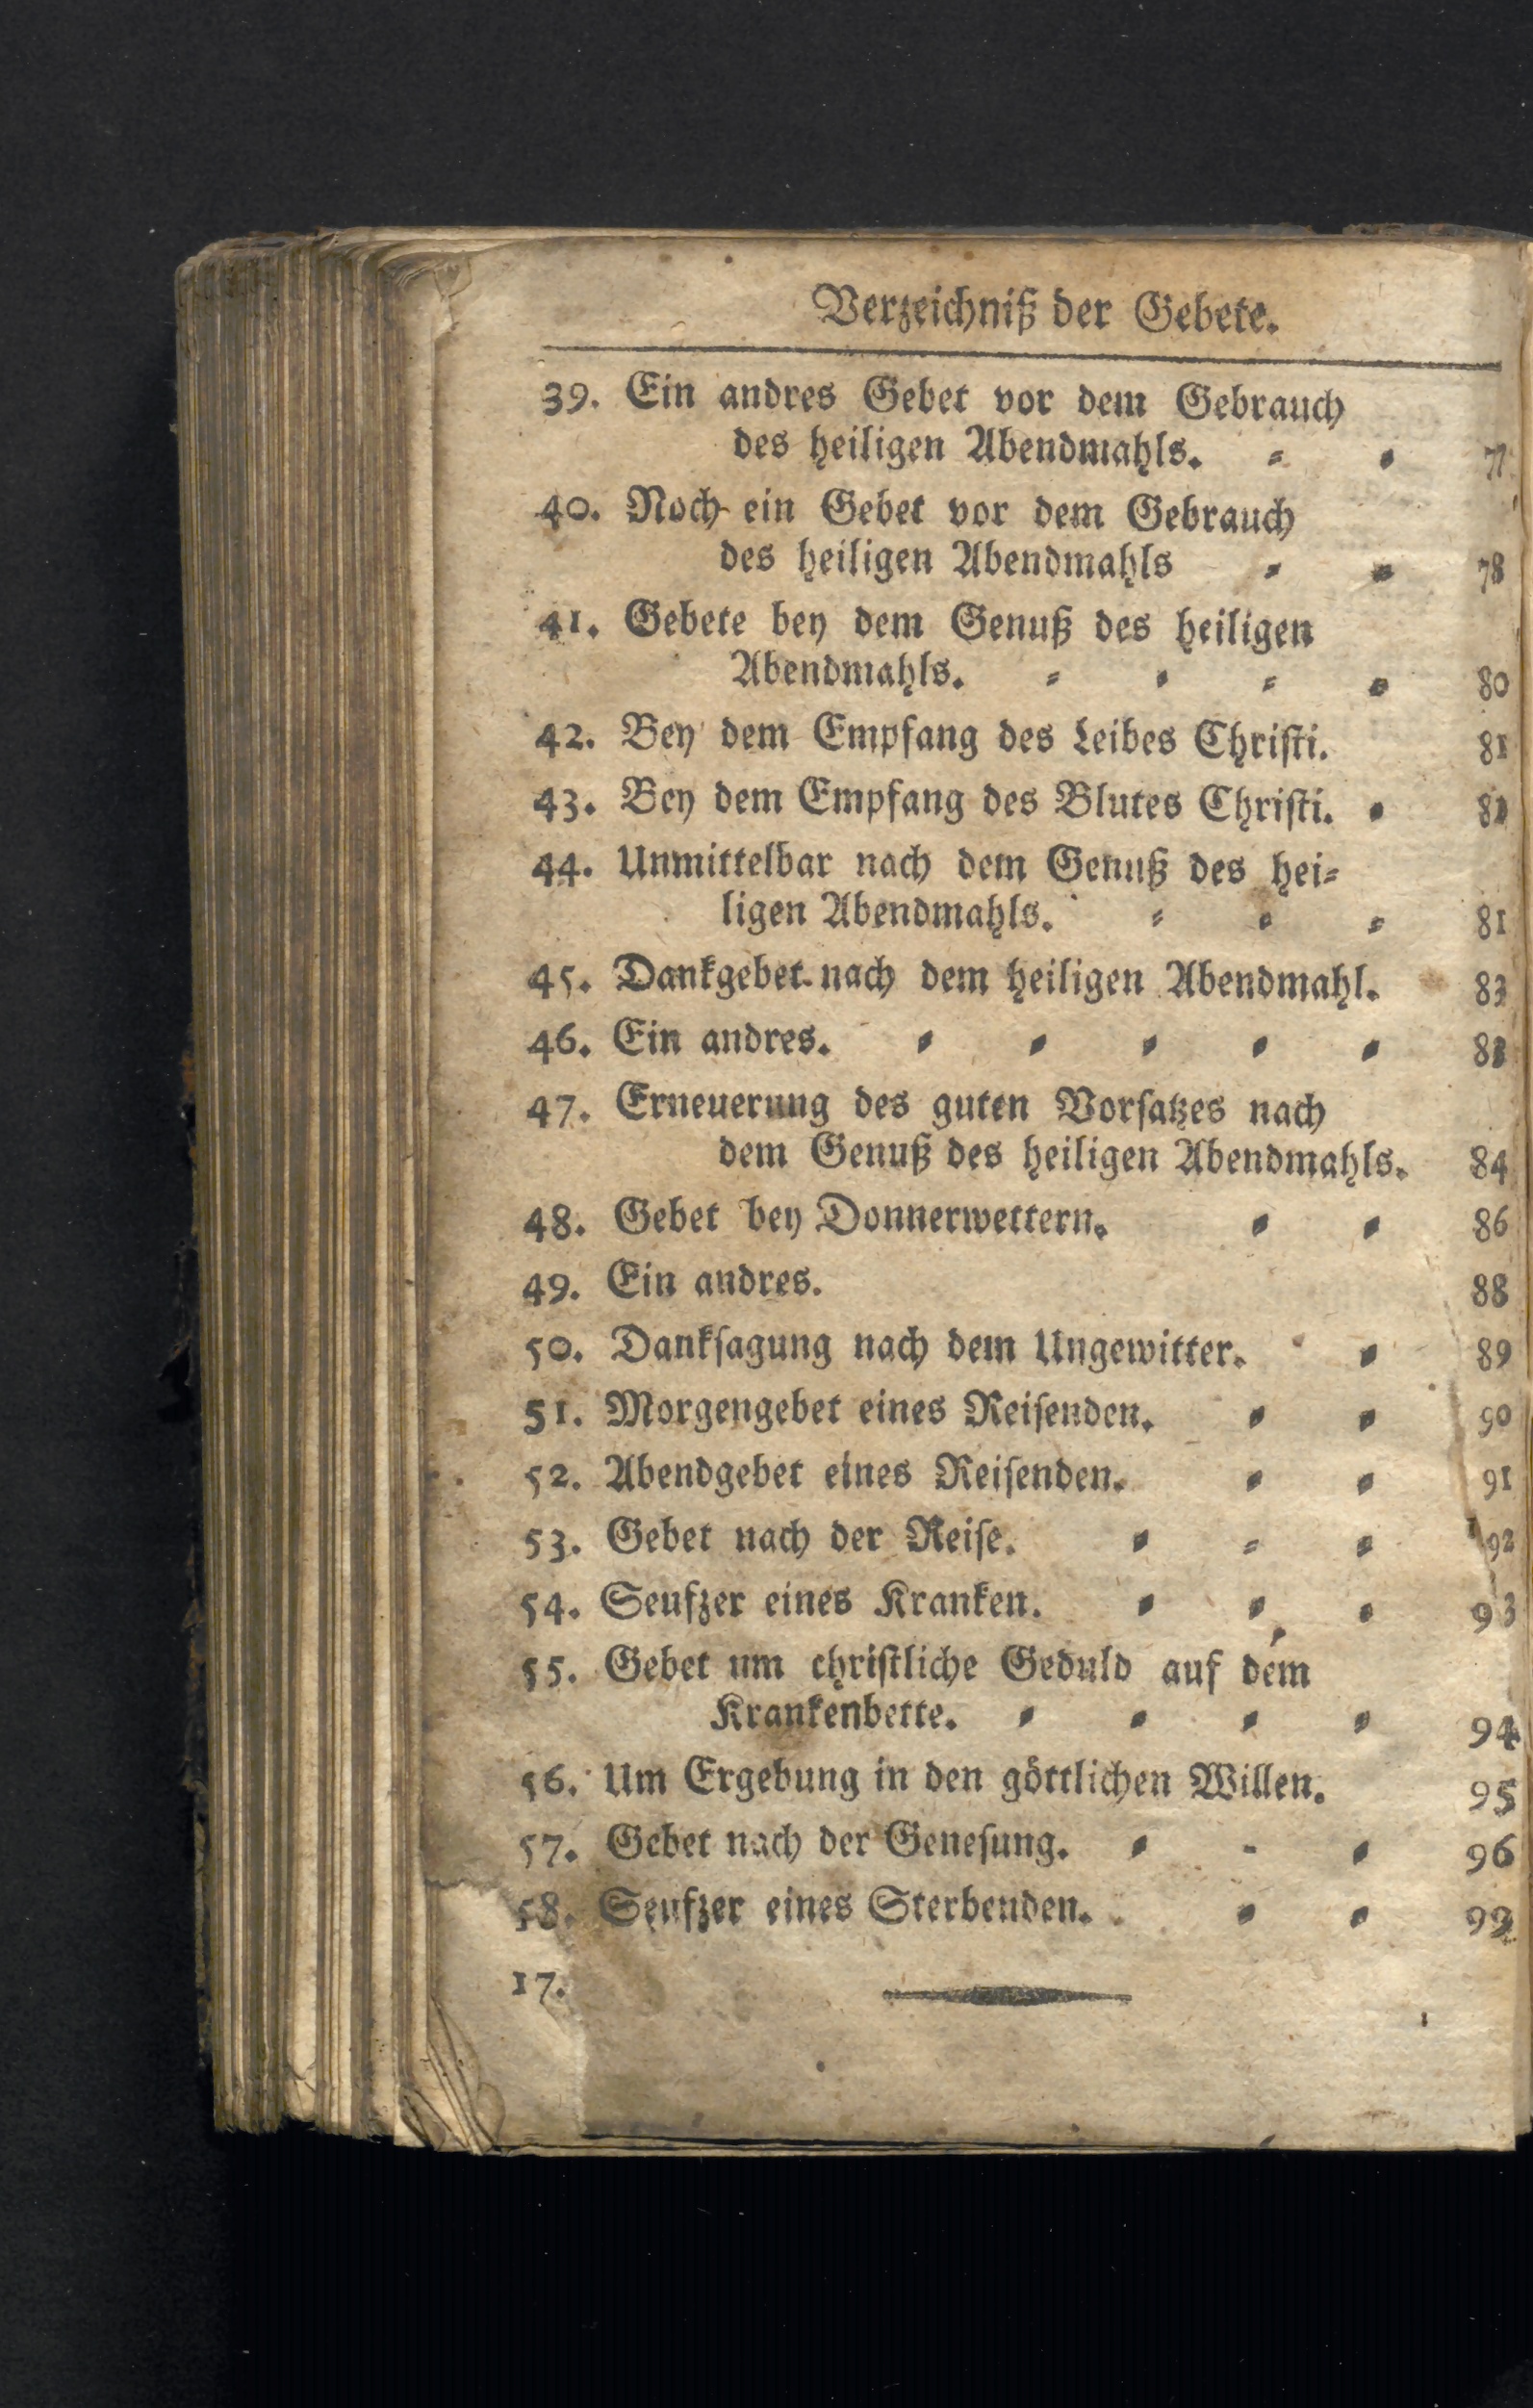 Verzeichniß der Gebete.
39. Ein andres Gebet vor dem Gebrauch
des heiligen Abendmahls. = = 77
40. Noch ein Gebet vor dem Gebrauch
des heiligen Abendmahls = = 78
41. Gebete bey dem Genuß des heiligen
Abendmahls. = = = = 80
42. Bey dem Empfang des Leibes Christi. 81
43. Bey dem Empfang des Blutes Christi. =
44. Unmittelbar nach dem Genuß des hei=
ligen Abendmahls. = = = 81
45. Dankgebet nach dem heiligen Abendmahl. 83
46. Ein andres. = = = = =
47. Erneuerung des guten Vorsatzes nach
dem Genuß des heiligen Abendmahls. 84
48. Gebet bey Donnerwettern. = = 86
49. Ein andres. 88
50. Danksagung nach dem Ungewitter. = 89
51. Morgengebet eines Reisenden. = = 90
52. Abendgebet eines Reisenden. = = 91
53. Gebet nach der Reise. = = = 92
54. Seufzer eines Kranken. = = = 93
55. Gebet um christliche Geduld auf dem
Krankenbette. = = = = 94
56. Um Ergebung in den göttlichen Willen. 95
57. Gebet nach der Genesung. = - = 96
58. Seufzer eines Sterbenden. = = 99
17.